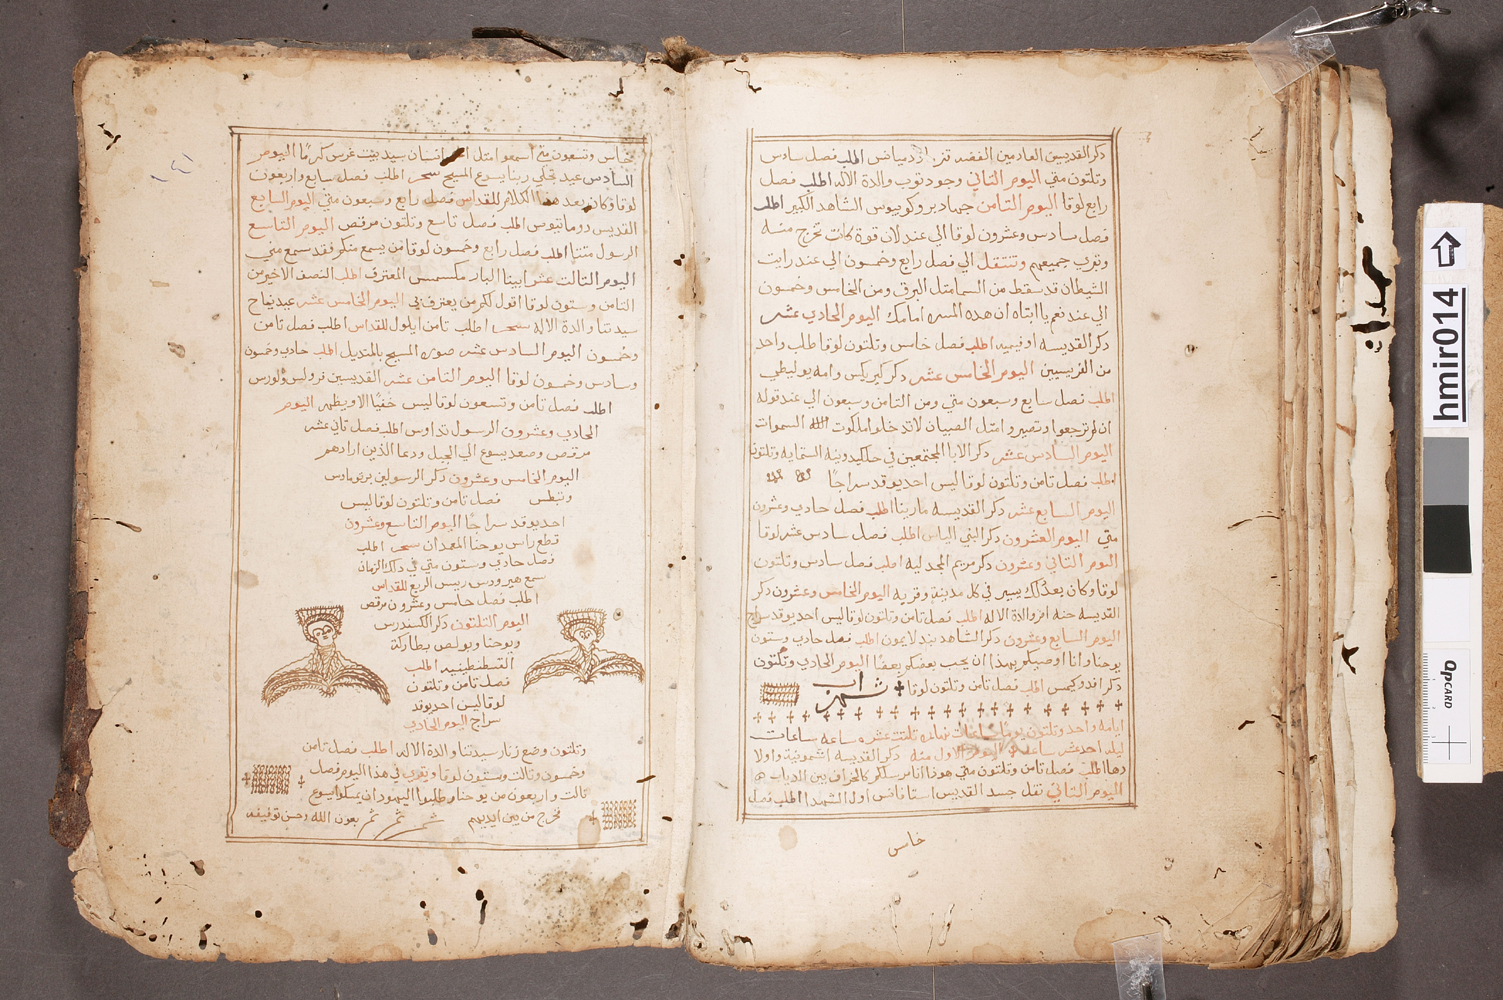 ذكر القديسين العادمين الفضه قزما ودميانس اطلب فصل سادس
وتلتون متي اليوم التاني وجود توب والدة الاله اطلب فصل
رابع لوقا اليوم التامن جهاد بروكوبيوس الشاهد الكبير اطلب
فصل سادس وعشرون لوقا الي عند لان قوة كانت تخرج منه
وتبرب جميعهم وتنتقل الي فصل رابع وخمسون الي عند رايت
الشيطان قد سقط من السما متل البرق ومن الخامس وخمسون
الي عند نعم يا ابتاه ان هده المسره امامك اليوم الحادي عشر
ذكر القديسه اوفيميه اطلب فصل خامس وتلتون لوقا طلب واحد
من الفريسيين اليوم الخامس عشر ذكر كيريكس وامه يوليطي
اطلب فصل سابع وسبعون متي ومن التامن وسبعون الي عند قوله
ان لم ترجعوا وتصيروا متل الصبيان لا تدخلوا ملكوت السموات
اليوم السادس عشر ذكر الابا المجتمعين في خلكيدونية الستمايه وتلتون
اطلب فصل تامن وتلتون لوقا ليس احد يوقد سراجا
اليوم السابع عشر ذكر القديسه مارينا اطلب فصل حادي وعشرون
متي اليوم العشرون ذكر النبي الياس اطلب فصل سادس عشر لوقا
اليوم التاني وعشرون ذكر مريم المجدليه اطلب فصل سادس وتلتون
لوقا وكان بعد ذلك يسير في كل مدينة وقريه اليوم الخامس وعشرون ذكر
القديسه حنه ام والدة الاله اطلب فصل تامن وتلتون لوقا ليس احد يوقد سراج
اليوم السابع وعشرون ذكر الشاهد بندلايمون اطلب فصل حادي وستون
يوحنا وانا اوصيكم بهذا ان يحب بعضكم بعضا اليوم الحادي وتلتون
ذكر افدوكيمس اطلب فصل تامن وتلتون لوقا شهر اب
ايامه واحد وتلتون يوما نهاره تلتت عشره ساعه ساعات
ليله احد عشر ساعه اليوم الاول منه ذكر القديسه اشمونية واولا
دها اطلب فصل تامن وتلتون متي هوذا انا مرسلكم كالخراف بين الدياب
اليوم التاني نقل جسد القديس استافانس اول الشهدا اطلب فصل
خامس
١٤١
خامس وتسعون متي اسمعوا متل اخر انسان سيد بيت غرس كرما اليوم
السادس عيد تجلي ربنا يسوع المسيح سحر اطلب فصل سابع واربعون
لوقا وكان بعد هذا الكلام للقداس فصل رابع وسبعون متي اليوم السابع
القديس دوماتيوس اطلب فصل تاسع وتلتون مرقص اليوم التاسع
الرسول متتيا اطلب فصل رابع وخمسون لوقا من يسمع منكم فقد سمع مني
اليوم التالت عشر ابينا البار مكسمس المعترف اطلب النصف الاخير من
التامن وستون لوقا اقول لكم من يعترف بي اليوم الخامس عشر عيد نياح
سيدتنا والدة الاله سحر اطلب تامن ايلول للقداس اطلب فصل تامن
وخمسون اليوم السادس عشر صورة المسيح بالمنديل اطلب حادي وخمسون
وسادس وخمسون لوقا اليوم التامن عشر القديسين فرولس ولورس
اطلب فصل تامن وتسعون لوقا ليس خفيا الا ويظهر اليوم
الحادي وعشرون الرسول تداوس اطلب فصل تاني عشر
مرقص وصعد يسوع الي الجبل ودعا الذين ارادهم
اليوم الخامس وعشرون ذكر الرسولين برتوماوس
وتيطس فصل تامن وتلتون لوقا ليس
احد يوقد سراجا اليوم التاسع وعشرون
قطع راس يوحنا المعمدان سحر اطلب
فصل حادي وستون متي في ذلك الزمان
سمع هيرودس رييس الربع للقداس
اطلب فصل خامس وعشرون مرقص
اليوم التلتون ذكر الكسندرس
ويوحنا وبولص بطاركة
القسطنطينيه اطلب
فصل تامن وتلتون
لوقا ليس احد يوقد
سراج اليوم الحادي
وتلتون وضع زنار سيدتنا والدة الاله اطلب فصل تامن
وخمسون وتالت وستون لوقا ويقرب في هذا اليوم فصل
تالت واربعون من يوحنا وطلبوا اليهود ان يمسكوا يسوع
فخرج من بين ايديهم تم تم تم بعون الله وحسن توفيقه
hmir014
QpCARD